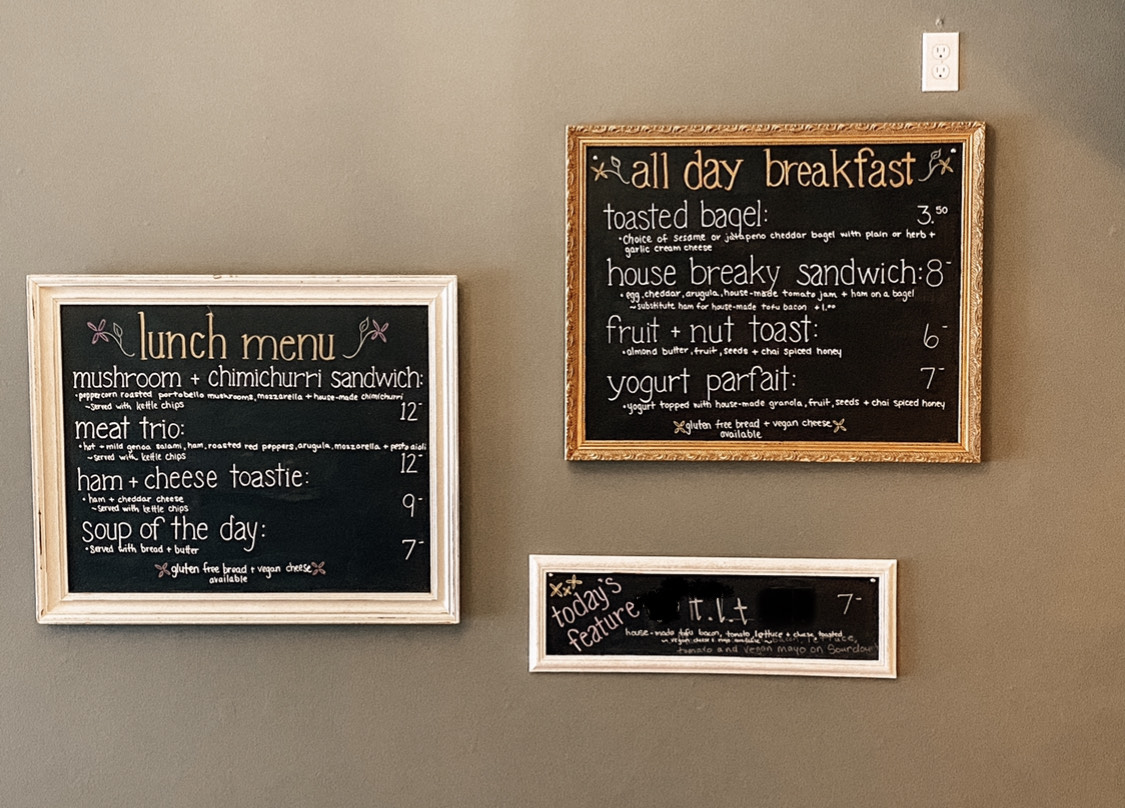 lunch menu
mushroom + chimichurri sandwich:
•peppercorn roasted portobello mushrooms, mozzarella + house-made chimichurri
~served with kettle chips
12-
meat trio:
•hot + mild genoa salami, ham, roasted red peppers, arugula, mozzarella + pesto aioli
~served with kettle chips
12-
ham + cheese toastie:
•ham + cheddar cheese
~served with kettle chips
9-
soup of the day:
•served with bread + butter
7-
gluten free bread + vegan cheese
available
all day breakfast
toasted bagel: 3.50
•Choice of sesame or jalapeno cheddar bagel with plain or herb +
garlic cream cheese
house breaky sandwich: 8-
•egg, cheddar, arugula, house-made tomato jam + ham on a bagel
~substitute ham for house-made tofu bacon +1.00
fruit + nut toast: 6-
•almond butter, fruit, seeds + chai spiced honey
yogurt parfait: 7-
•yogurt topped with house-made granola, fruit, seeds + chai spiced honey
gluten free bread + vegan cheese
available
today's
feature
t.l.t 7-
house-made tofu bacon, tomato, lettuce + cheese, toasted
lettuce,
tomato and vegan mayo on Sourdough